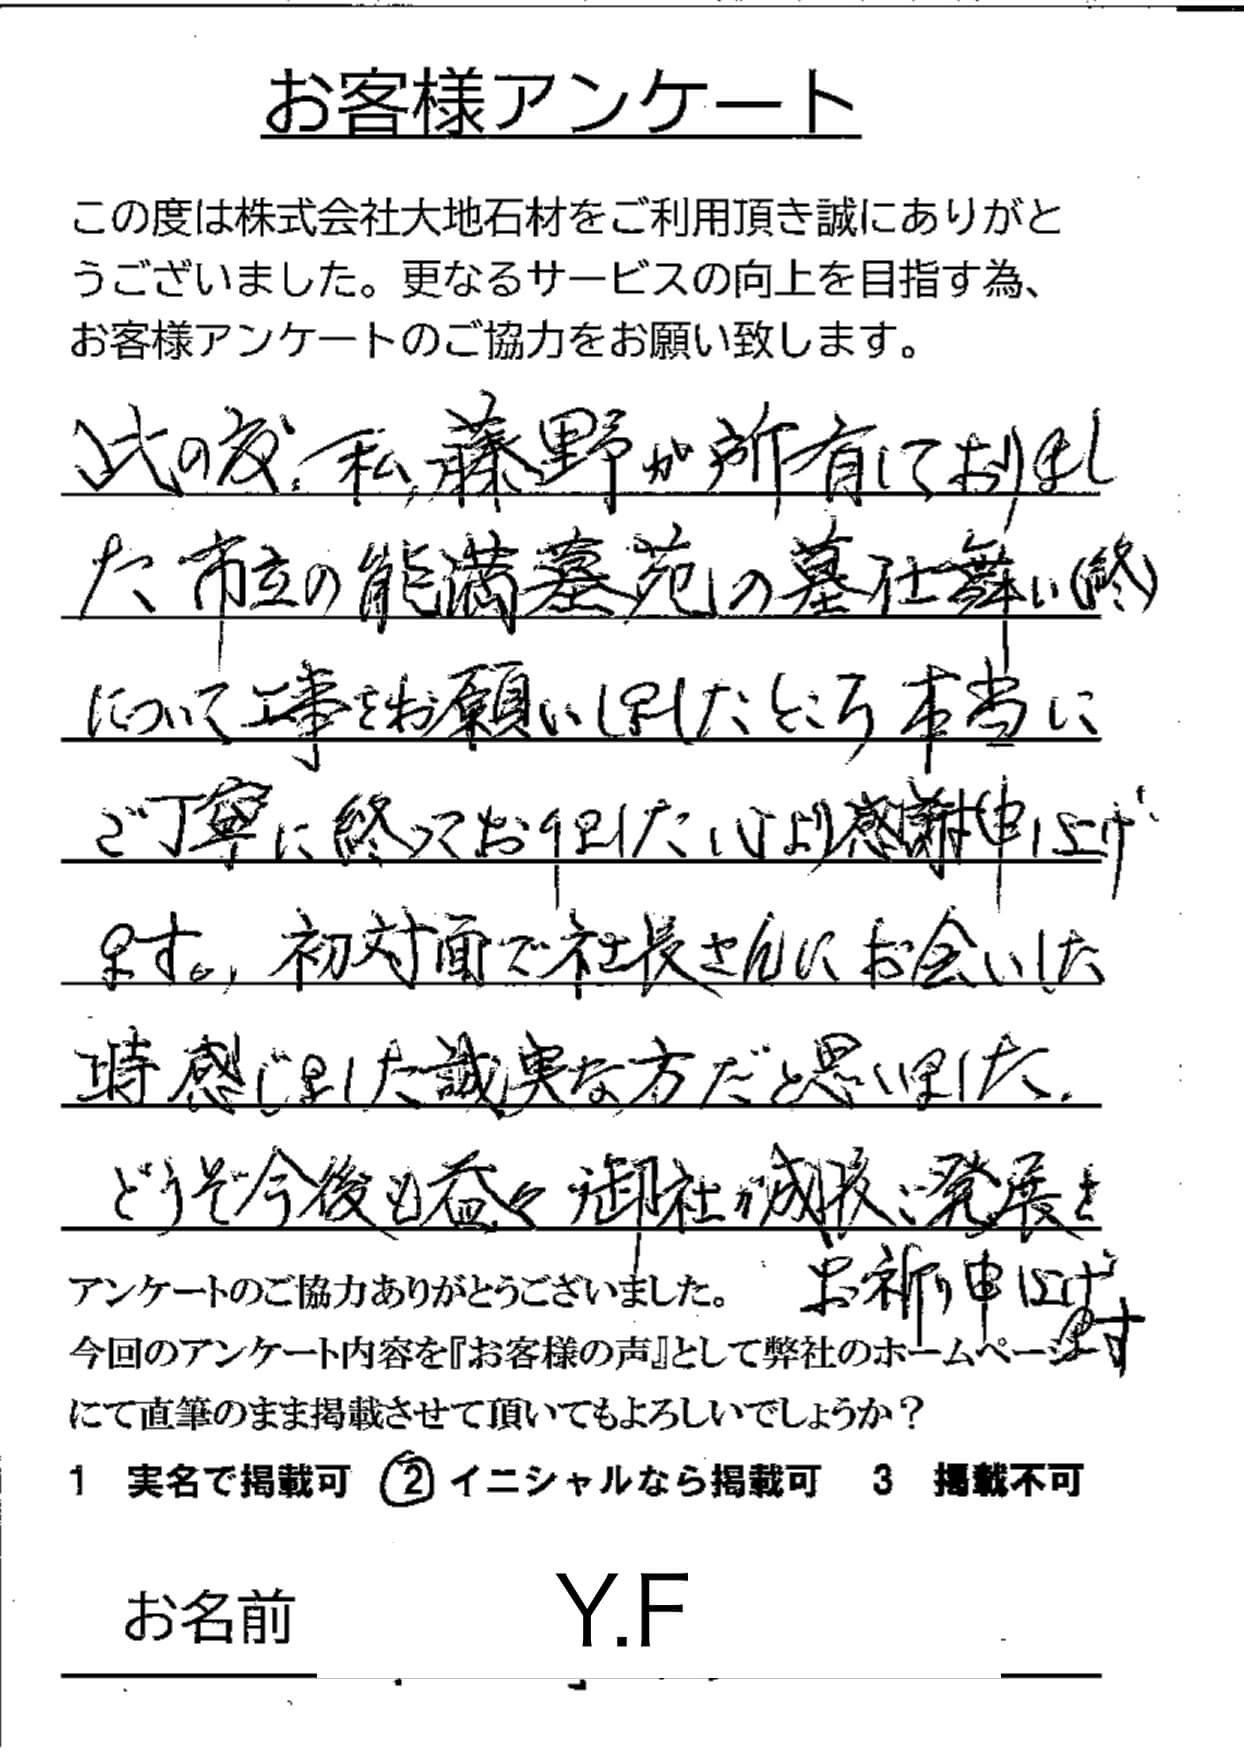 お客様アンケート
この度は株式会社大地石材をご利用頂き誠にありがと
うございました。更なるサービスの向上を目指す為、
お客様アンケートのご協力をお願い致します。
此の度、私、藤野が所有しておりまし
た市立の能満墓苑の墓仕舞い(終)
について工事をお願いしましたところ本当に
ご丁寧に終っておりました心より感謝申し上げ
ます。、初対面で社長さんにお会いした
時感じました誠実な方だと思いました。
どうぞ今後も益々御社が成長ご発展を
お祈り申し上げ
ます
アンケートのご協力ありがとうございました。
今回のアンケート内容を『お客様の声』として弊社のホームページ
にて直筆のまま掲載させて頂いてもよろしいでしょうか？
1 実名で掲載可 ②イニシャルなら掲載可 3 掲載不可
お名前 Y.F